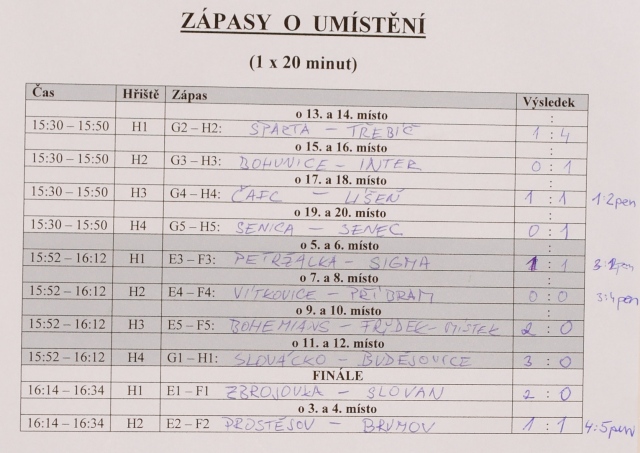 ZÁPASY O UMÍSTĚNÍ
(1 x 20 minut)
Čas Hřiště Zápas Výsledek
o 13. a 14. místo :
15:30 – 15:50 H1 G2 – H2: SPARTA – TŘEBÍČ 1 : 4
o 15. a 16. místo :
15:30 – 15:50 H2 G3 – H3: BOHUNICE – INTER 0 : 1
o 17. a 18. místo :
15:30 – 15:50 H3 G4 – H4: ČAFC – LÍŠEŇ 1 : 1 1:2pen
o 19. a 20. místo :
15:30 – 15:50 H4 G5 – H5: SENICA – SENEC 0 : 1
o 5. a 6. místo :
15:52 – 16:12 H1 E3 – F3: PETRŽALKA – SIGMA 1 : 1 pen
o 7. a 8. místo :
15:52 – 16:12 H2 E4 – F4: VÍTKOVICE – PŘÍBRAM 0 : 0 3:4pen
o 9. a 10. místo :
15:52 – 16:12 H3 E5 – F5: BOHEMIANS – FRÝDEK-MÍSTEK 2 : 0
o 11. a 12. místo :
15:52 – 16:12 H4 G1 – H1: SLOVÁCKO – BUDĚJOVICE 3 : 0
FINÁLE
16:14 – 16:34 H1 E1 – F1 ZBROJOVKA – SLOVAN 2 : 0
o 3. a 4. místo :
16:14 – 16:34 H2 E2 – F2 PROSTĚJOV – BRUMOV 1 : 1 4:5pen